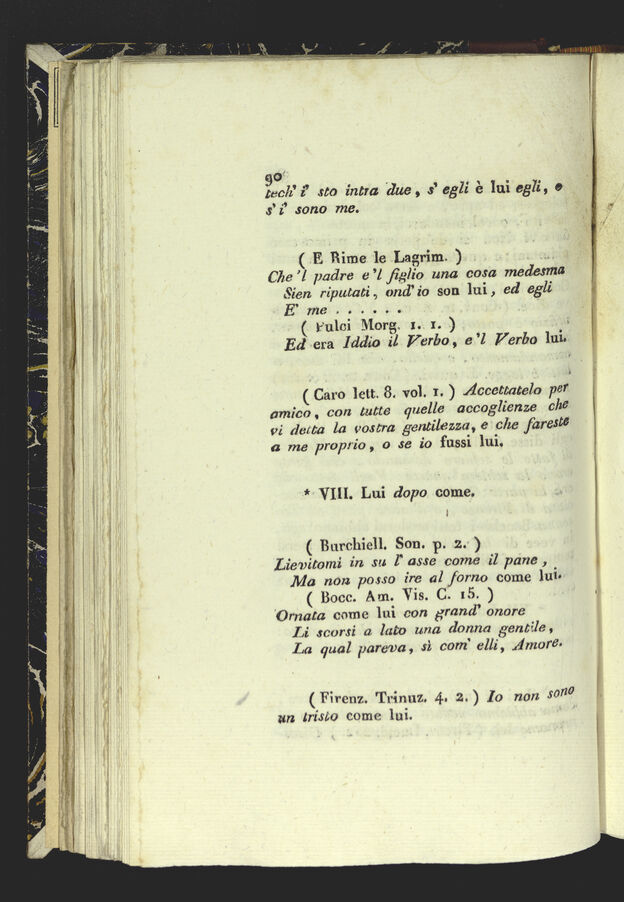 90
tech' i' sto intra due, s' egli è lui egli, e
s' i' sono me.
( E Rime le Lagrim. )
Che 'l padre e 'l figlio una cosa medesma
Sien riputati, ond' io son lui, ed egli
E' me . . . . . .
( Pulci Morg. 1. 1. )
Ed era Iddio il Verbo, e 'l Verbo lui.
( Caro lett. 8. vol. 1. ) Accettatelo per
amico, con tutte quelle accoglienze che
vi detta la vostra gentilezza, e che fareste
a me proprio, o se io fussi lui.
* VIII. Lui dopo come.
( Burchiell. Son. p. 2. )
Lievitomi in su l' asse come il pane,
Ma non posso ire al forno come lui.
( Bocc. Am. Vis. C. 15. )
Ornata come lui con grand' onore
Li scorsi a lato una donna gentile,
La qual pareva, sì com' elli, Amore.
( Firenz. Trinuz. 4. 2. ) Io non sono
un tristo come lui.